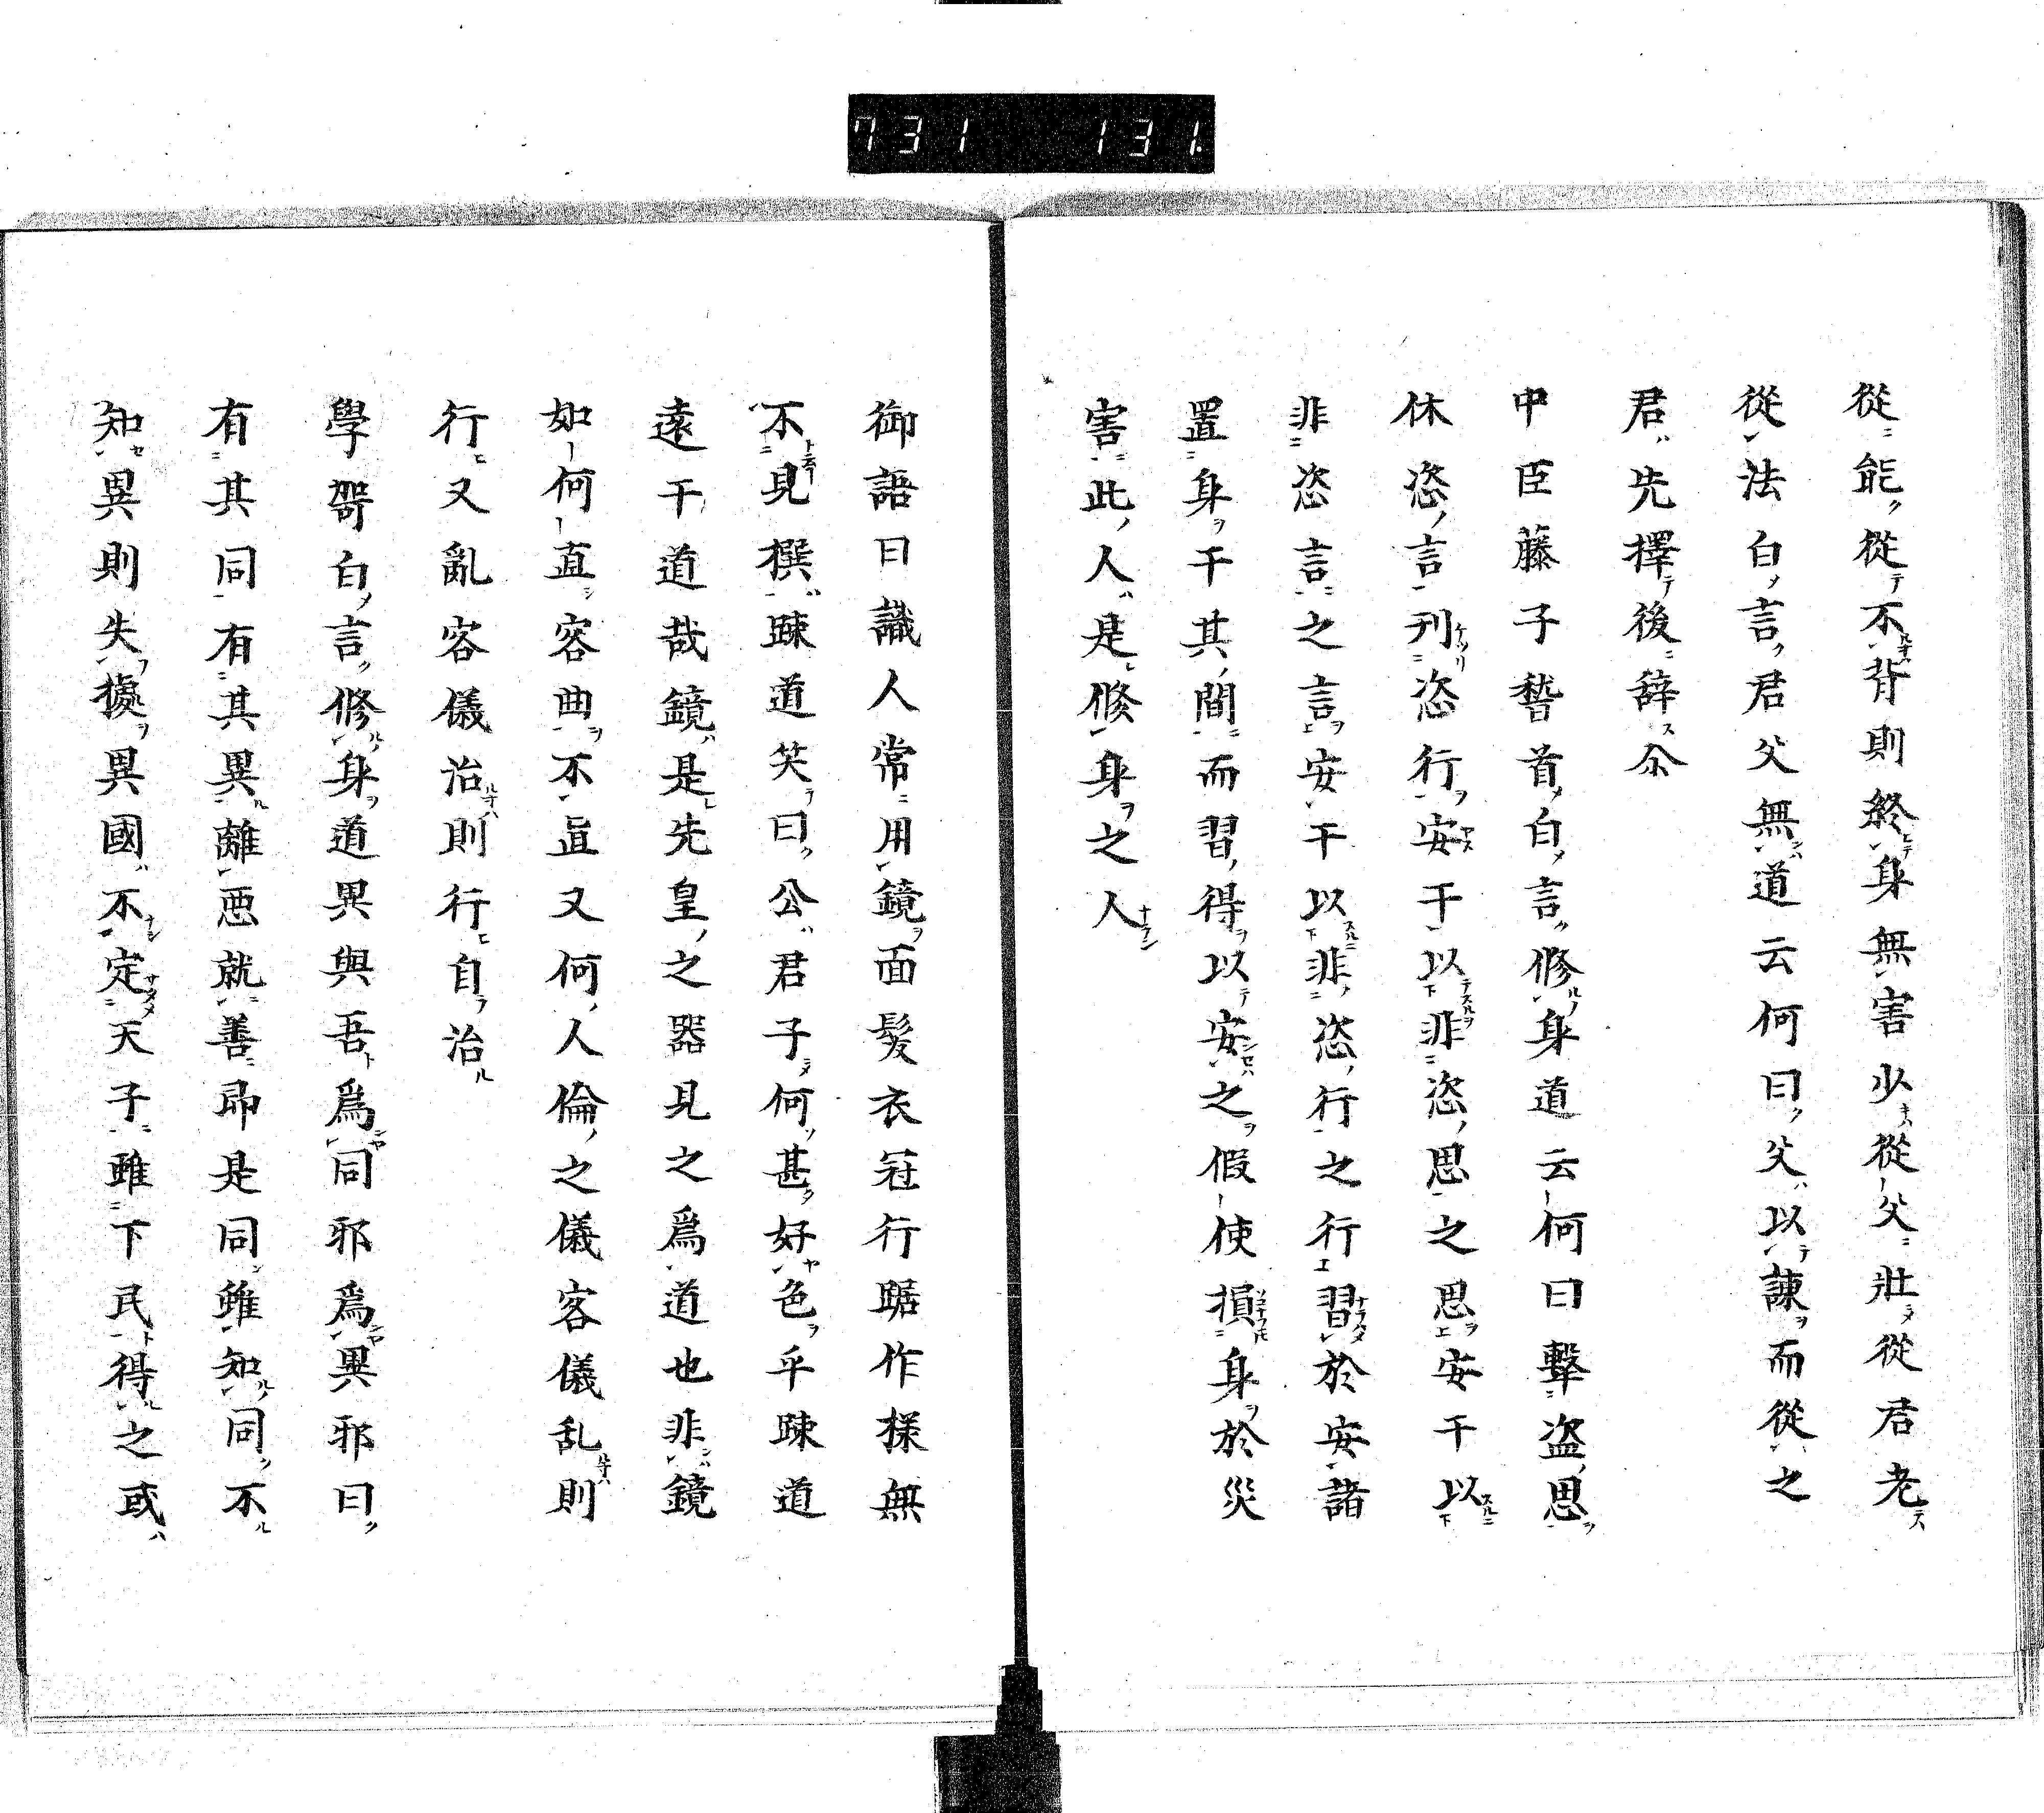 731 131.
從能從不背則終身無害少從父壯從君老
從法白言君父無道云何曰父以諫而從之
君先擇後辞尒
中臣藤子𥡴首白言修身道云何曰擊盗思
休恣言刊恣行安干以非恣思之思安干以
非恣言之言安干以非恣行之行習於安諸
置身干其間而習得以安之假使損身於災
害此人是修身之人
御語曰識人常用鏡面髮衣冠行踞作採無
不見撰踈道笑曰公君子何甚好色乎踈道
遠干道哉鏡是先皇之器見之爲道也非鏡
如何直容曲不直又何人倫之儀容儀乱則
行又亂容儀治則行自治
學哿白言修身道異與吾爲同邪爲異邪曰
有其同有其異離悪就善昂是同雖知同不
知異則失據異國不定天子雖下民得之或